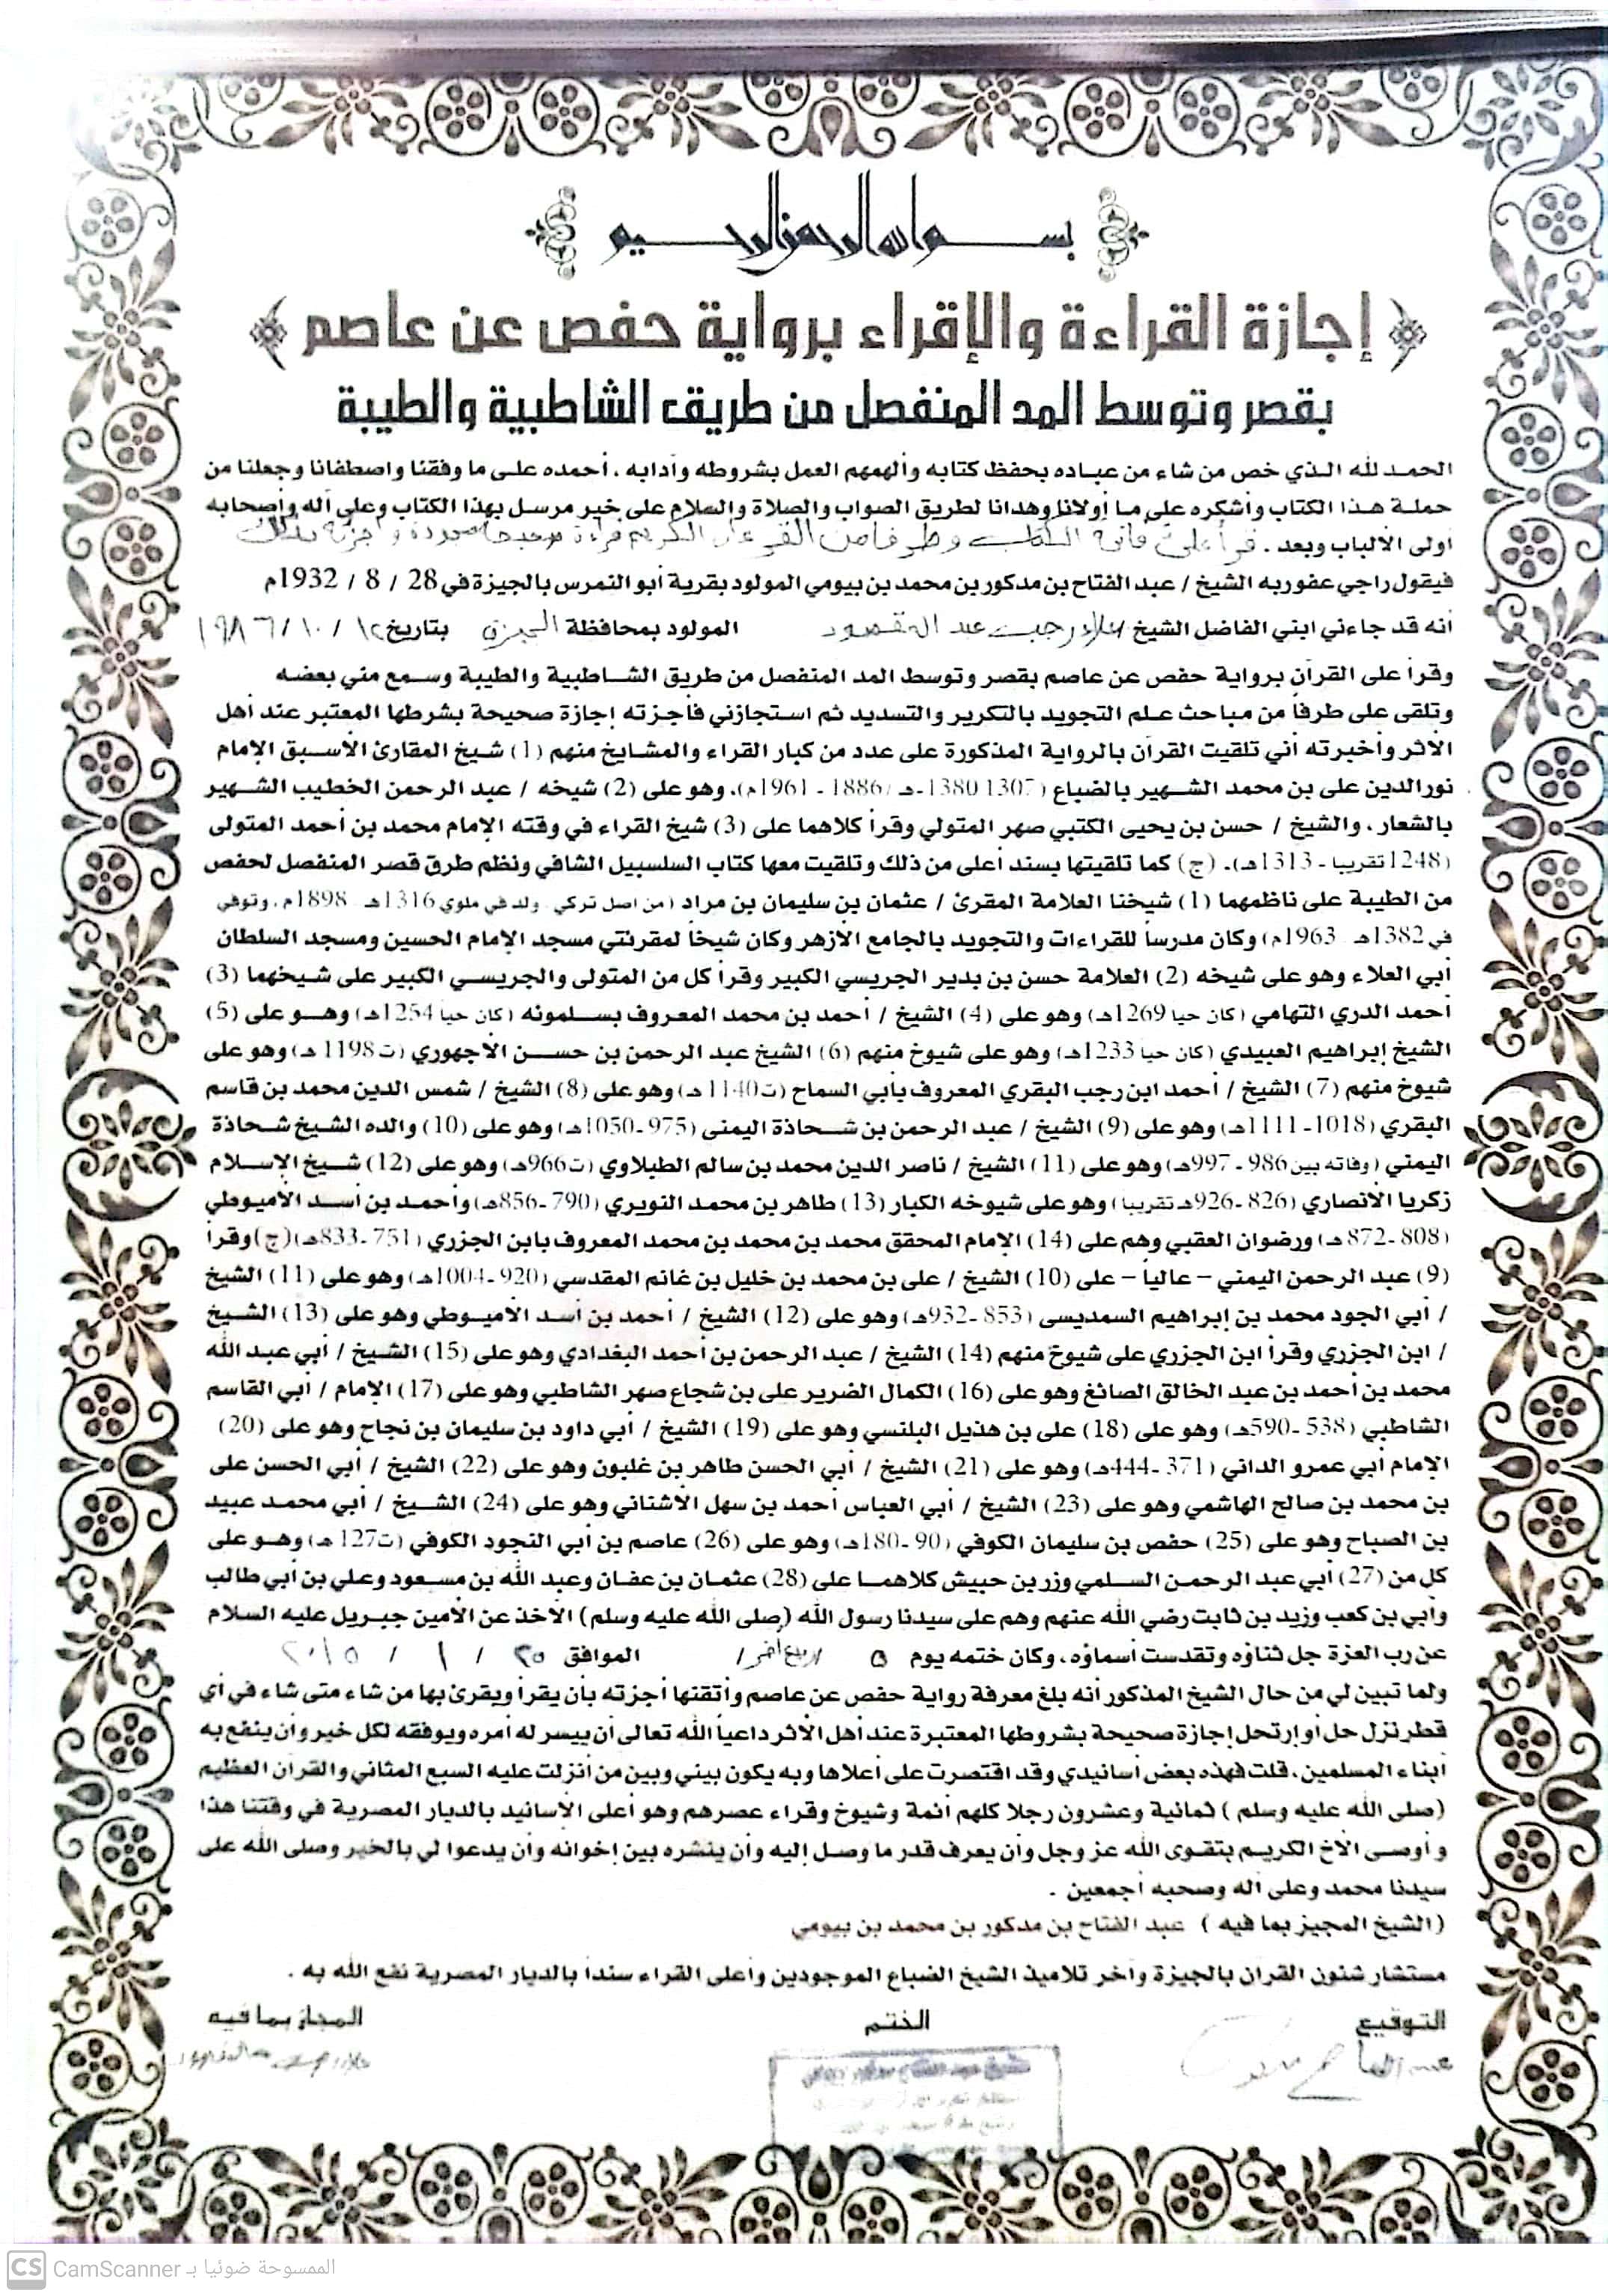 بسم الله الرحمن الرحيم
إجازة القراءة والإقراء برواية حفص عن عاصم
بقصر وتوسط المد المنفصل من طريق الشاطبية والطيبة
الحمد لله الذي خص من شاء من عباده بحفظ كتابه وألهمهم العمل بشروطه وآدابه ، أحمده على ما وفقنا واصطفانا وجعلنا من
حملة هذا الكتاب وأشكره على ما أولانا وهدانا لطريق الصواب والصلاة والسلام على خير مرسل بهذا الكتاب وعلى آله وأصحابه
أولى الألباب وبعد . قرأ علىّ فاتحة الكتاب وطرفا من القرءان الكريم قراءة صحيحة مجودة وأجزته بذلك
فيقول راجي عفو ربه الشيخ / عبد الفتاح بن مدكور بن محمد بن بيومي المولود بقرية أبو النمرس بالجيزة في 28 / 8 / 1932م
أنه قد جاءني ابني الفاضل الشيخ علاء رجب عبد المقصود المولود بمحافظة الجيزة بتاريخ ١٢ / ١٠ / ١٩٨٦
وقرأ على القرآن برواية حفص عن عاصم بقصر وتوسط المد المنفصل من طريق الشاطبية والطيبة وسمع مني بعضه
وتلقى على طرفاً من مباحث علم التجويد بالتكرير والتسديد ثم استجازني فأجزته إجازة صحيحة بشرطها المعتبر عند أهل
الأثر وأخبرته أني تلقيت القرآن بالرواية المذكورة على عدد من كبار القراء والمشايخ منهم (1) شيخ المقارئ الأسبق الإمام
نور الدين على بن محمد الشهير بالضباع (1307 1380-هـ /1886 - 1961م)، وهو على (2) شيخه / عبد الرحمن الخطيب الشهير
بالشعار ، والشيخ / حسن بن يحيى الكتبي صهر المتولي وقرأ كلاهما على (3) شيخ القراء في وقته الإمام محمد بن أحمد المتولى
(1248تقريبا - 1313هـ). (ح) كما تلقيتها بسند أعلى من ذلك وتلقيت معها كتاب السلسبيل الشافي ونظم طرق قصر المنفصل لحفص
من الطيبة على ناظمهما (1) شيخنا العلامة المقرئ / عثمان بن سليمان بن مراد (من اصل تركي ولد في ملوي 1316هـ 1898م ، وتوفي
في 1382هـ 1963م) وكان مدرساً للقراءات والتجويد بالجامع الأزهر وكان شيخاً لمقرئتي مسجد الإمام الحسين ومسجد السلطان
أبي العلاء وهو على شيخه (2) العلامة حسن بن بدير الجريسي الكبير وقرأ كل من المتولى والجريسي الكبير على شيخهما (3)
أحمد الدري التهامي (كان حيا 1269هـ) وهو على (4) الشيخ / أحمد بن محمد المعروف بسلمونه (كان حيا 1254هـ) وهو على (5)
الشيخ إبراهيم العبيدي (كان حيا 1233هـ) وهو على شيوخ منهم (6) الشيخ عبد الرحمن بن حسن الأجهوري (ت 1198 هـ) وهو على
شيوخ منهم (7) الشيخ / أحمد ابن رجب البقري المعروف بأبي السماح (ت 1140 هـ) وهو على (8) الشيخ / شمس الدين محمد بن قاسم
البقري (1018- 1111هـ) وهو على (9) الشيخ / عبد الرحمن بن شحاذة اليمنى (975-1050هـ) وهو على (10) والده الشيخ شحاذة
اليمني (وفاته بين 986 - 997هـ) وهو على (11) الشيخ / ناصر الدين محمد بن سالم الطبلاوي (ت966هـ) وهو على (12) شيخ الإسلام
زكريا الأنصاري (826 -926هـ تقريبا) وهو على شيوخه الكبار (13) طاهر بن محمد النويري (790 -856هـ) وأحمد بن أسد الأميوطي
(808- 872 هـ) ورضوان العقبي وهم على (14) الإمام المحقق محمد بن محمد بن محمد المعروف بابن الجزري (751 -833هـ)(ح)وقرأ
(9) عبد الرحمن اليمني – عالياً – على (10) الشيخ / على بن محمد بن خليل بن غانم المقدسي (920 -1004هـ) وهو على (11) الشيخ
/ أبي الجود محمد بن إبراهيم السمديسى (853 -932هـ) وهو على (12) الشيخ / أحمد بن أسد الأميوطي وهو على (13) الشيخ
/ ابن الجزري وقرأ ابن الجزري على شيوخ منهم (14) الشيخ / عبد الرحمن بن أحمد البغدادي وهو على (15) الشيخ / أبي عبد الله
محمد بن أحمد بن عبد الخالق الصائغ وهو على (16) الكمال الضرير على بن شجاع صهر الشاطبي وهو على (17) الإمام / أبي القاسم
الشاطبي (538 -590هـ) وهو على (18) على بن هذيل البلنسي وهو على (19) الشيخ / أبي داود بن سليمان بن نجاح وهو على (20)
الإمام أبي عمرو الداني (371 -444هـ) وهو على (21) الشيخ / أبي الحسن طاهر بن غلبون وهو على (22) الشيخ / أبي الحسن على
بن محمد بن صالح الهاشمي وهو على (23) الشيخ / أبي العباس أحمد بن سهل الأشناني وهو على (24) الشيخ / أبي محمد عبيد
بن الصباح وهو على (25) حفص بن سليمان الكوفي (90 -180هـ) وهو على (26) عاصم بن أبي النجود الكوفي (ت127 هـ) وهو على
كل من (27) أبي عبد الرحمن السلمي وزر بن حبيش كلاهما على (28) عثمان بن عفان وعبد الله بن مسعود وعلي بن أبي طالب
وأبي بن كعب وزيد بن ثابت رضي الله عنهم وهم على سيدنا رسول الله (صلى الله عليه وسلم) الآخذ عن الأمين جبريل عليه السلام
عن رب العزة جل ثناؤه وتقدست أسماؤه ، وكان ختمه يوم ٥ / ربيع آخر / الموافق ٢٥ / ١ / ٢٠١٥
ولما تبين لي من حال الشيخ المذكور أنه بلغ معرفة رواية حفص عن عاصم وأتقنها أجزته بأن يقرأ ويقرئ بها من شاء متى شاء في أي
قطر نزل حل أو إرتحل إجازة صحيحة بشروطها المعتبرة عند أهل الأثر داعياً الله تعالى أن ييسر له أمره ويوفقه لكل خير وأن ينفع به
أبناء المسلمين ، قلت فهذه بعض أسانيدي وقد اقتصرت على أعلاها وبه يكون بيني وبين من أنزلت عليه السبع المثاني والقرآن العظيم
(صلى الله عليه وسلم ) ثمانية وعشرون رجلا كلهم أئمة وشيوخ وقراء عصرهم وهو أعلى الأسانيد بالديار المصرية في وقتنا هذا
و أوصى الأخ الكريم بتقوى الله عز وجل وأن يعرف قدر ما وصل إليه وأن ينشره بين إخوانه وأن يدعوا لي بالخير وصلى الله على
سيدنا محمد وعلى آله وصحبه أجمعين .
(الشيخ المجيز بما فيه ) عبد الفتاح بن مدكور بن محمد بن بيومي
مستشار شئون القرآن بالجيزة وآخر تلاميذ الشيخ الضباع الموجودين وأعلى القراء سنداً بالديار المصرية نفع الله به .
التوقيع الختم المجاز بما فيه
عبد الفتاح مدكور
CS CamScanner الممسوحة ضوئيا بـ